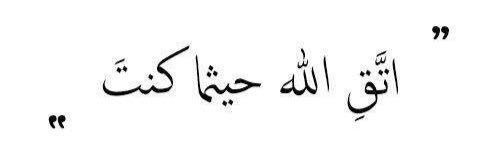 ” اتَّقِ الله حيثما كنتَ “